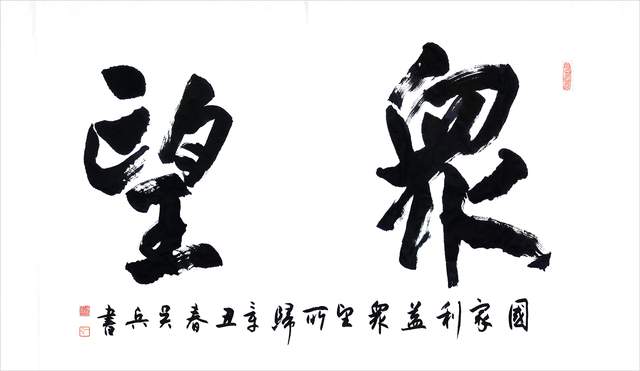 眾望
國家利益眾望所歸辛丑春吴兵書